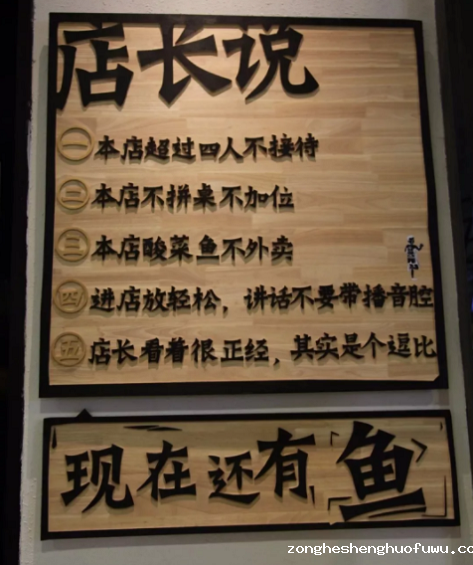 店长说
一 本店超过四人不接待
二 本店不拼桌不加位
三 本店酸菜鱼不外卖
四 进店放轻松，讲话不要带播音腔
五 店长看着很正经，其实是个逗比
现在还有「鱼」
zongheshenghuofuwu.co